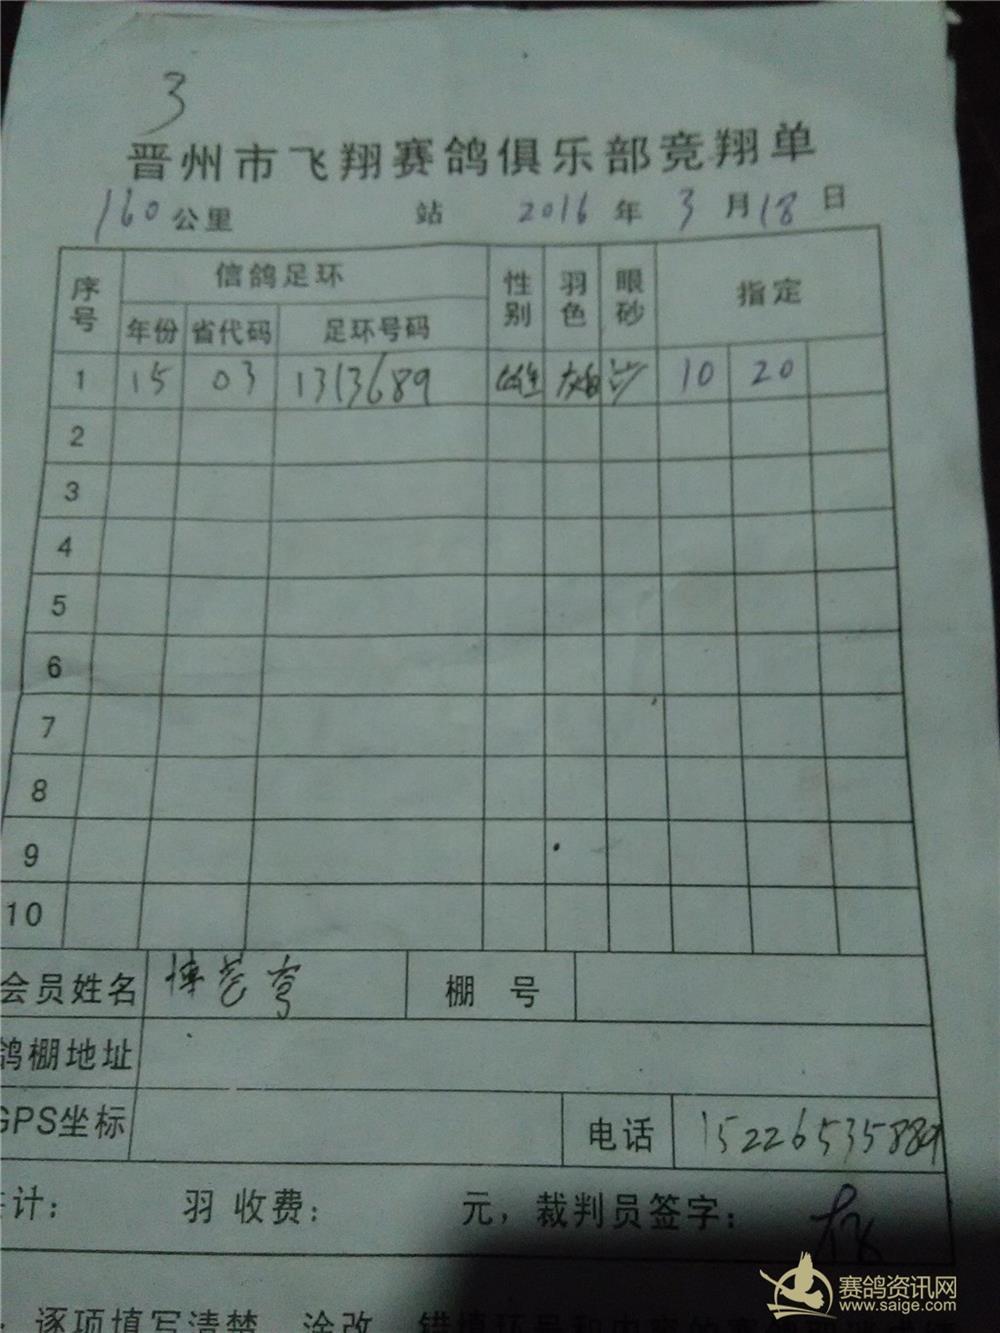 3
晋州市飞翔赛鸽俱乐部竞翔单
160公里 站 2016年3月18日
序号 信鸽足环 性别 羽色 眼砂 指定
年份 省代码 足环号码
1 15 03 1313689 雄 沙 10 20
2
3
4
5
6
7
8
9
10
会员姓名 棚号
鸽棚地址
GPS坐标 电话 15226535889
计: 羽 收费: 元,裁判员签字:
逐项填写清楚
赛鸽资讯网
www.saige.com